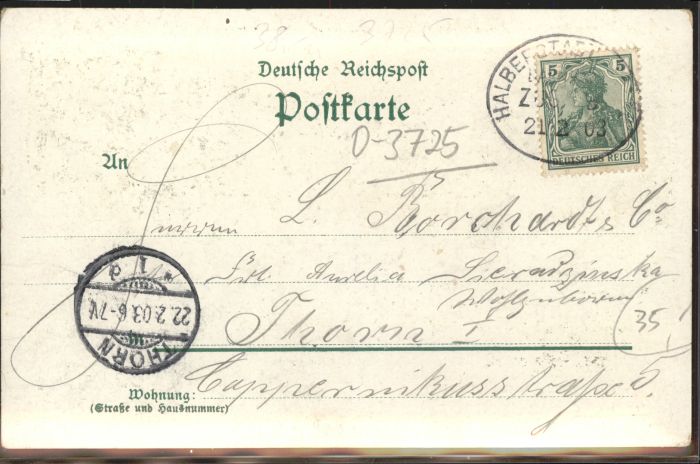 Deutsche Reichspost
Postkarte
D-3725
An
HALBERSTADT
ZUG
21 2 03
5 5
DEUTSCHES REICH
Herrn L. Borchardt & Co
Frl. Aurelia Sieradzinska
Wohlgeboren
Thorn I
35
Coppernikusstraße 5.
Wohnung:
(Straße und Hausnummer)
THORN
22.2.03.6-7V.